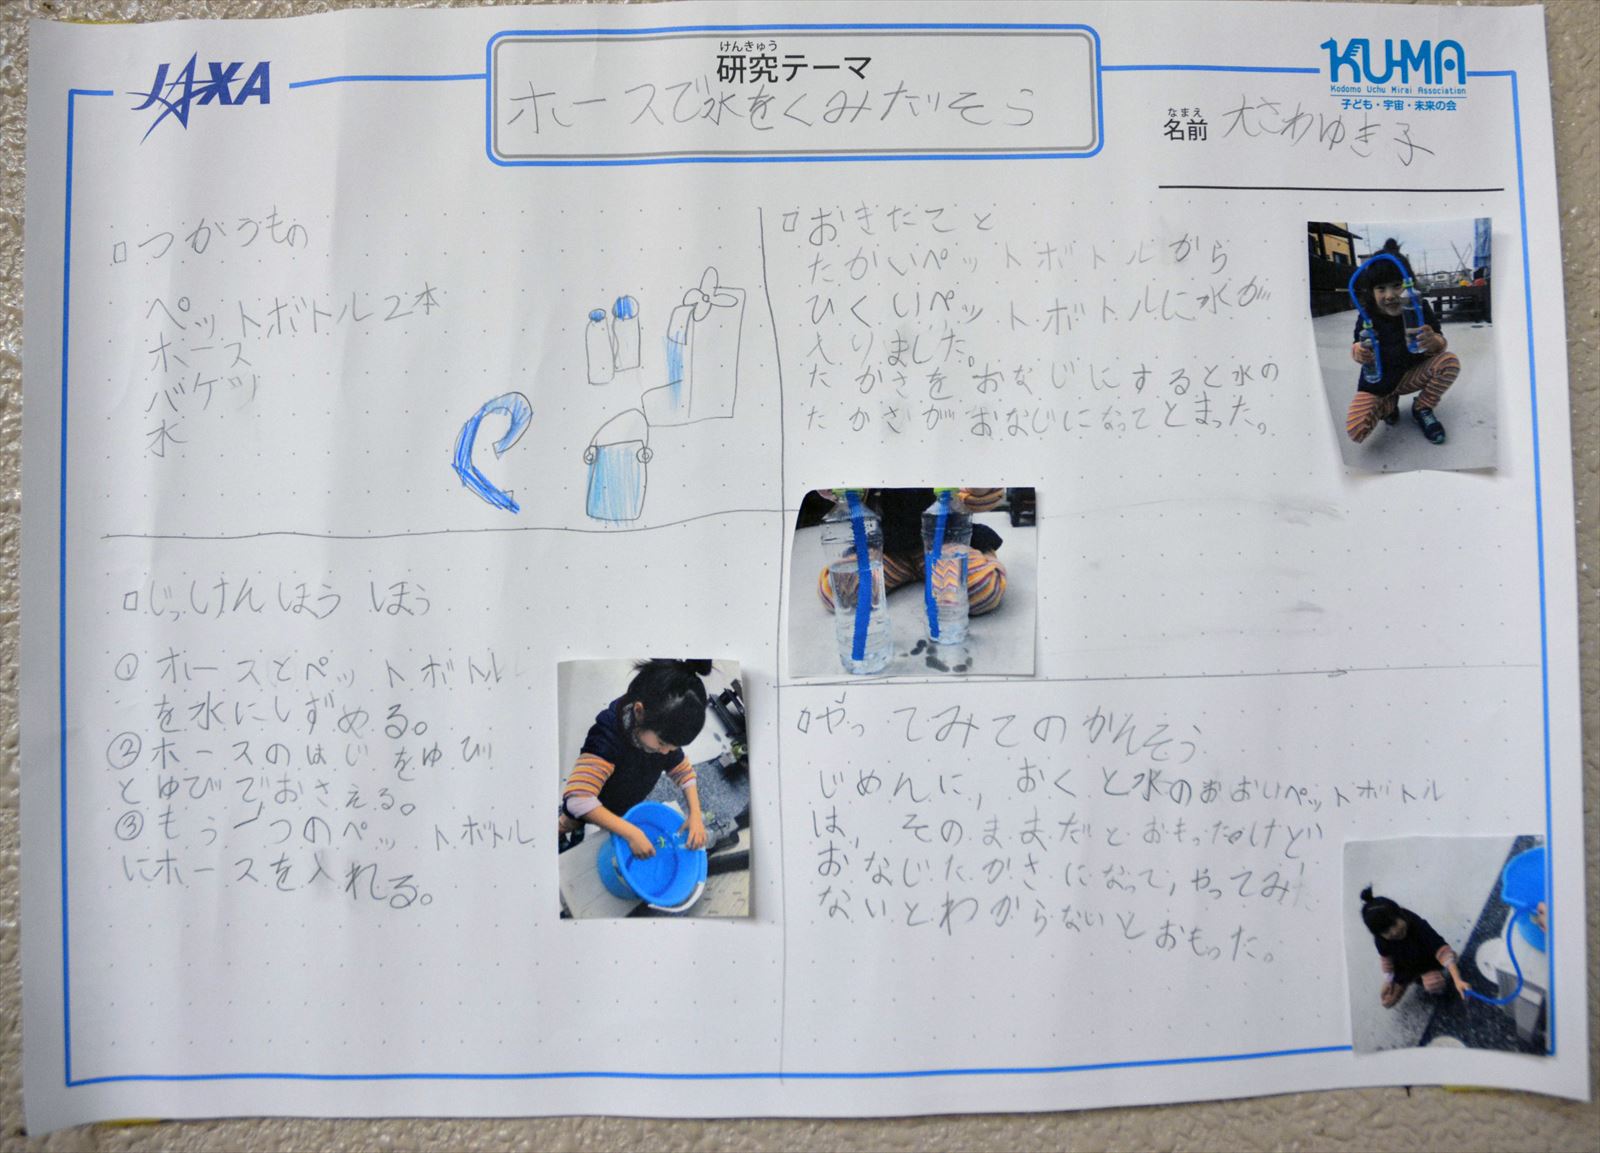 JAXA
けんきゅう
研究テーマ
ホースで水をくみだそう
KU-MA
Kodomo Uchu Mirai Association
子ども・宇宙・未来の会
なまえ
名前 大さわゆき子
つかうもの
ペットボトル2本
ホース
バケツ
水
じっけんほうほう
① ホースとペットボトル
を水にしずめる。
② ホースのはじをゆび
とゆびでおさえる。
③ もう一つのペットボトル
にホースを入れる。
おきたこと
たかいペットボトルから
ひくいペットボトルに水が
入りました。
たかさをおなじにすると水の
たかさがおなじになってとまった。
やってみてのかんそう
じめんに、おくと水のおおいペットボトル
は、そのままだとおもったけど
おなじたかさになって、やってみ
ないとわからないとおもった。